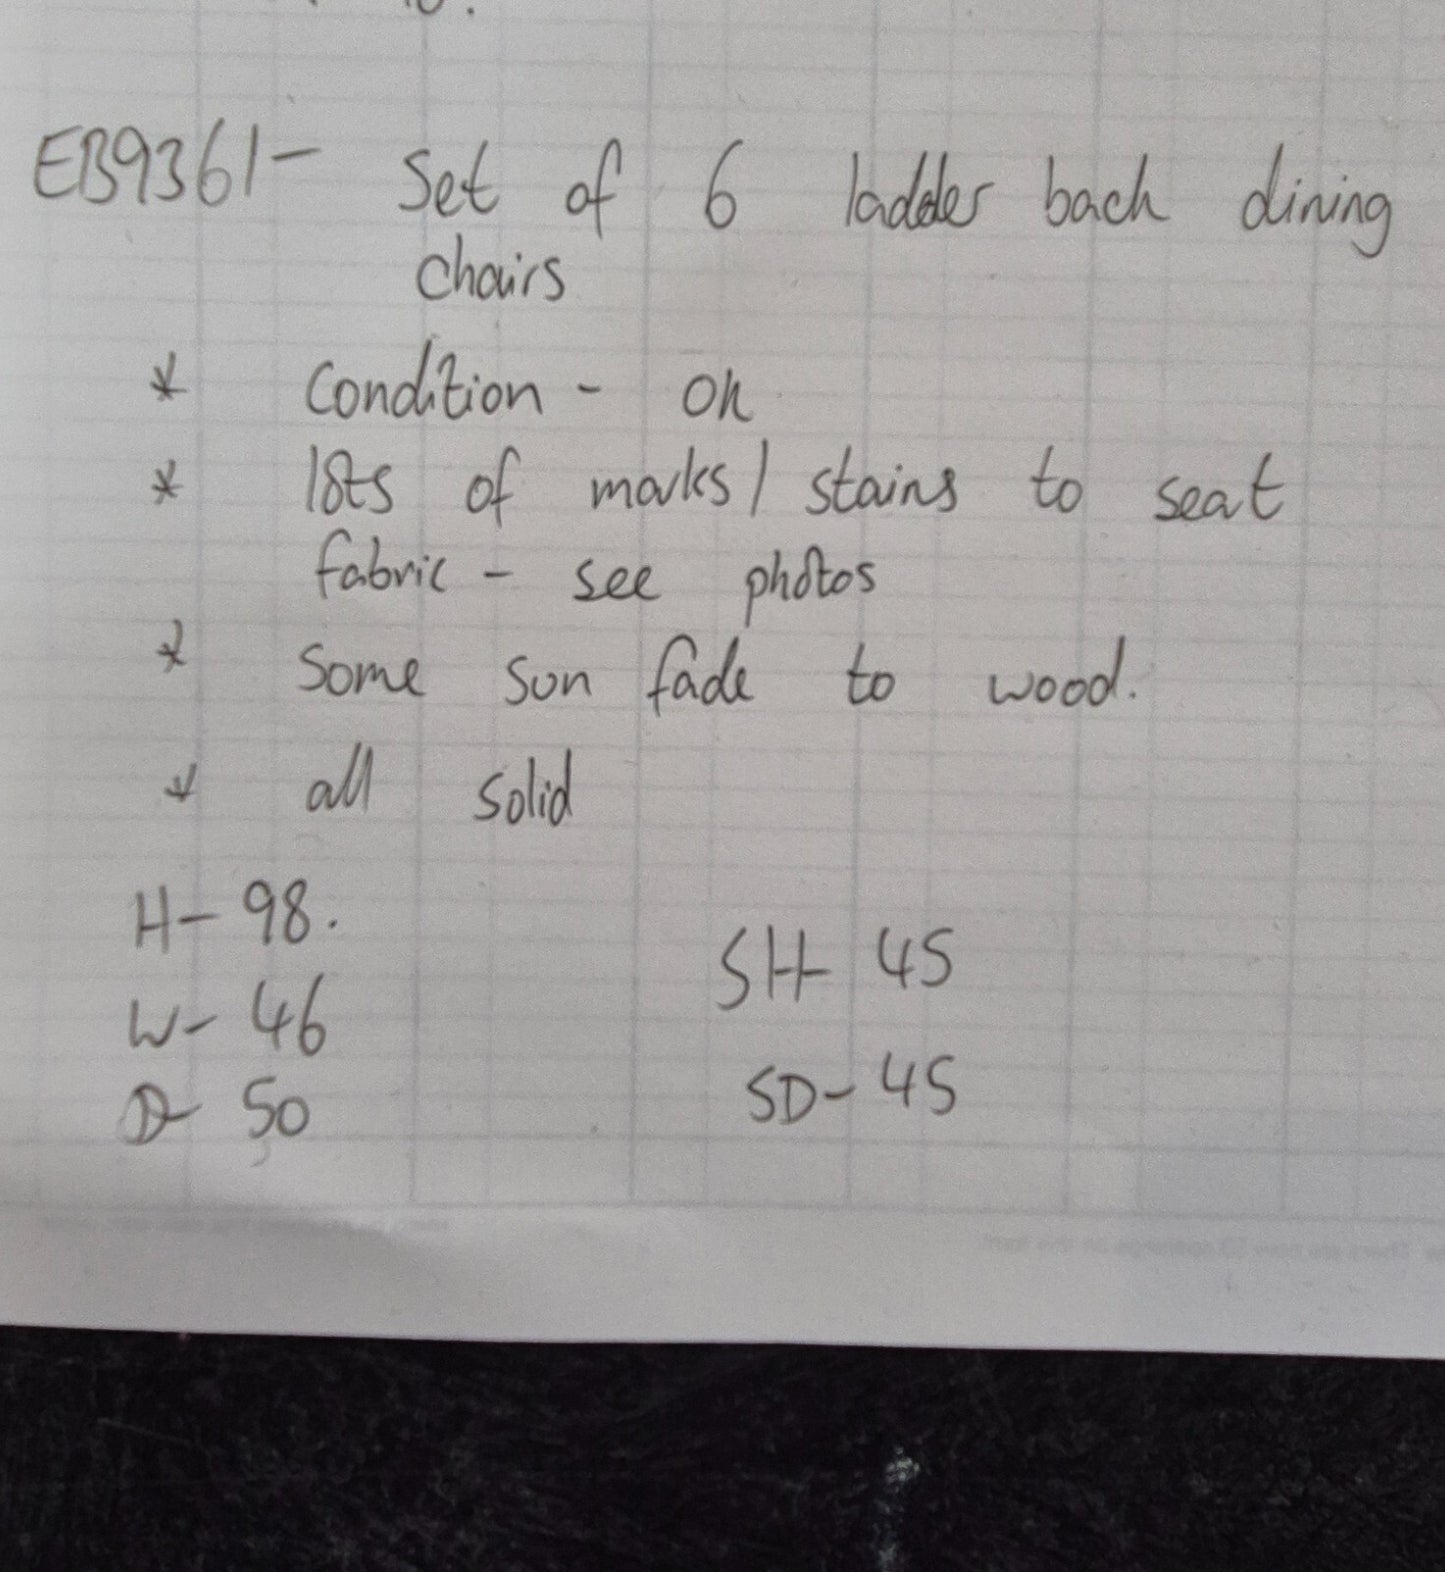 EB9361- Set of 6 ladder back dining
chairs
* Condition - OK
* lots of marks/ stains to seat
fabric - see photos
* Some sun fade to wood.
* all solid
H- 98.
W- 46
D- 50
SH- 45
SD- 45